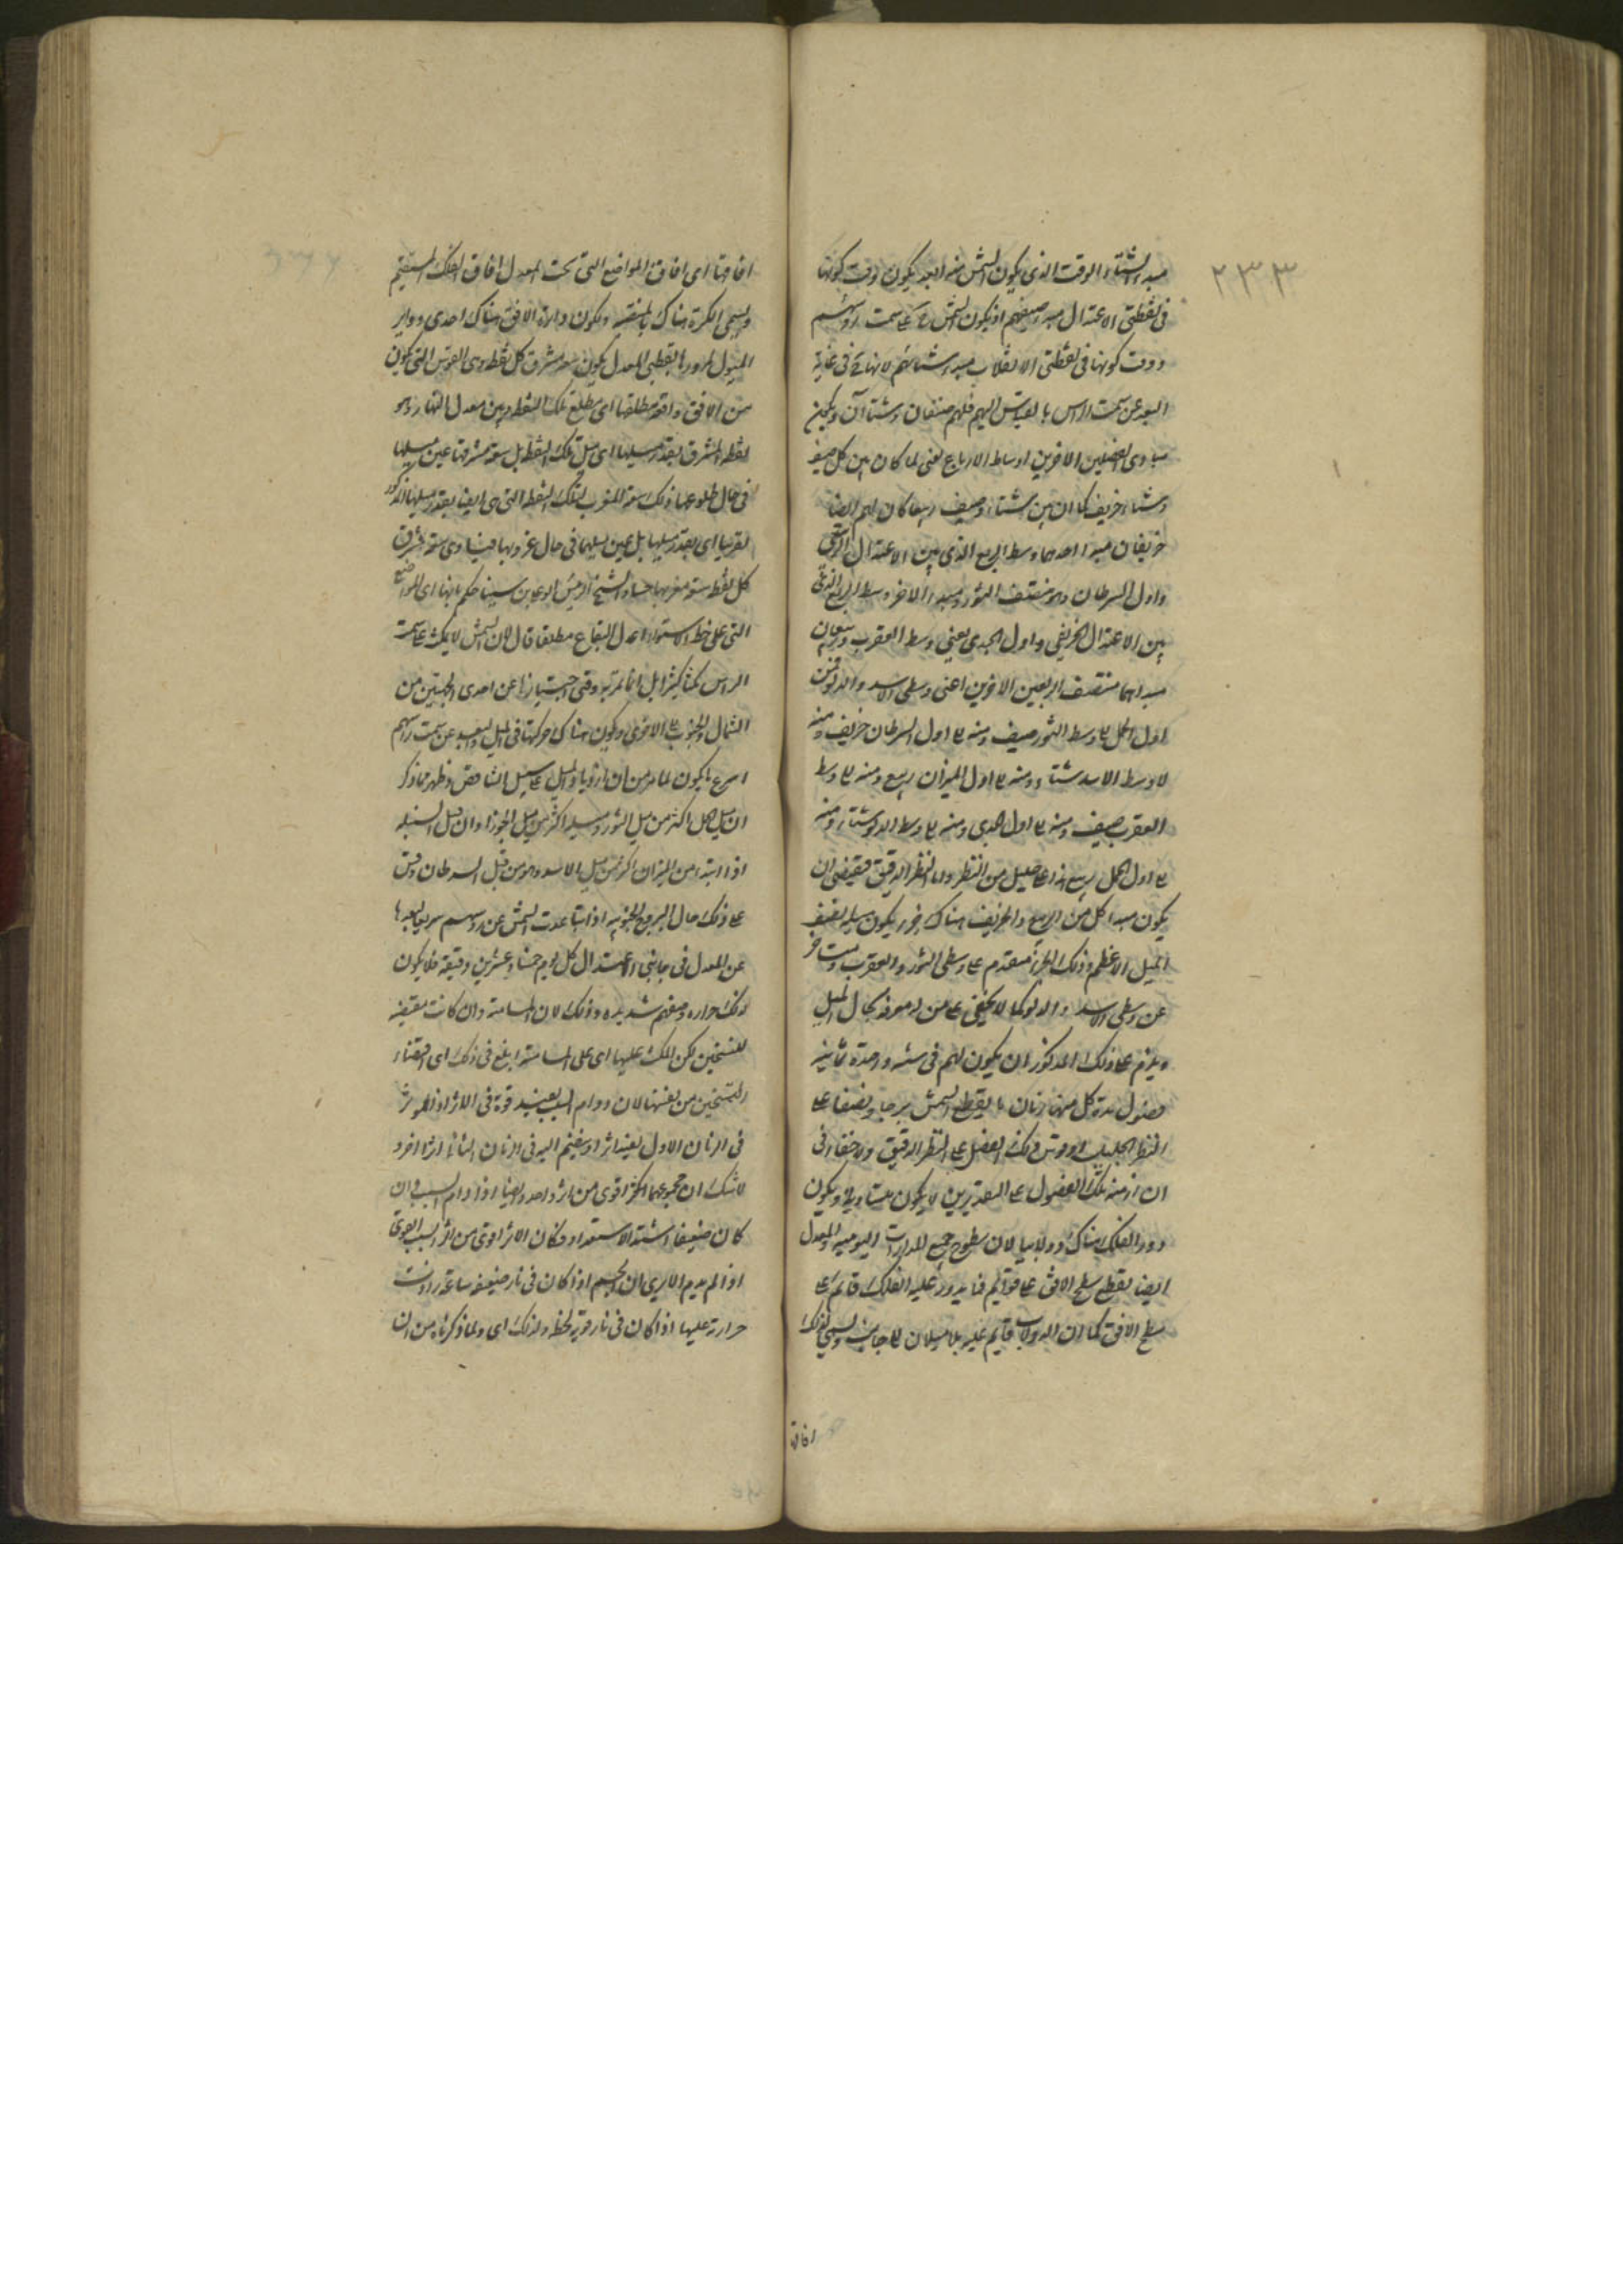 ٢٣٣
مبدء الشتاء الوقت الذي يكون الشمس منه ابعد يكون وقت كونها
في نقطتي الاعتدال مبدء صيفهم اذ يكون الشمس ح على سمت رؤسهم
ووقت كونها في نقطتي الانقلاب مبدء شتائهم لانها ح في غاية
البعد عن سمت الراس بالقياس اليهم فلهم صيفان وشتاآن ويكون
مبادي الفصلين الاخرين اوساط الارباع يعني لما كان بين كل صيف
وشتاء خريف كما ان بين شتاء وصيف ربيعا كان لهم ايضا
خريفان مبدا احدهما وسط الربع الذي بين الاعتدال الربيعي
واول السرطان وهو منتصف الثور ومبدء الاخر وسط الربع الذي
بين الاعتدال الخريفي واول الجدي يعني وسط العقرب وربيعان
مبداهما منتصف الربعين الاخرين اعني وسطي الاسد والدلو فمن
اول الحمل الى وسط الثور صيف ومنه الى اول السرطان خريف ومنه
الى وسط الاسد شتاء ومنه الى اول الميزان ربيع ومنه الى وسط
العقرب صيف ومنه الى اول الجدي ومنه الى وسط الدلو شتاء ومنه
الى اول الحمل ربيع هذا على جليل من النظر واما النظر الدقيق فيقتضي ان
يكون مبدا كل من الربيع والخريف هناك جزء يكون ميله نصف
الميل الاعظم وذلك الجزء متقدم على وسطي الثور والعقرب ومتاخر
عن وسطي الاسد والدلو كما لا يخفى على من له معرفة بحال الميل
ويلزم على ذلك المذكور ان يكون لهم في سنة واحدة ثمانية
فصول مدة كل منها زمان ما يقطع الشمس برجا ونصفا على
النظر الجليل او قوس ذلك الفصل على النظر الدقيق ولا خفاء في
ان ازمنة تلك الفصول على التقديرين لا يكون متساوية ويكون
دور الفلك هناك دولابيا لان سطوح جميع المدارات اليومية والمعدل
ايضا يقطع سطح الافق على قوائم فما يدور عليه الفلك قائم على
سطح الافق كما ان الدولاب قايم عليه بلا ميلان الى جانب ويسمى لذلك
افاق
افاقها اي افاق المواضع التي تحت المعدل افاق الفلك المستقيم
ويسمى الكرة هناك بالمنتصبة ويكون دائرة الافق هناك احدى دواير
الميول لمرورها بقطبي المعدل يكون سعة مشرق كل نقطة وهي القوس التي يكون
من الافق واقعة مطلعها اي مطلع تلك النقطة وبين معدل النهار وهو
نقطة المشرق بقدر ميلها اي ميل تلك النقطة بل سعة مشرقها عين ميلها
في حال طلوعها وذلك سعة المغرب لتلك النقطة التي هي ايضا بقدر ميلها المذكور
تقريبا اي بقدر ميلها بل عين ميلها في حال غروبها فيساوي سعة مشرق
كل نقطة سعة مغربها حسا والشيخ الرئيس ابو علي بن سينا حكم بانها اي المواضع
التي على خط الاستواء اعدل البقاع مطلقا قال لان الشمس لا يمكث على سمت
الراس مكثا كثيرا بل انما تمر به وقتي اجتيازها عن احدى الجهتين من
الشمال والجنوب الى الاخرى ويكون هناك حركتها في الميل والبعد عن سمت راسهم
اسرع ما يكون لما مر من ان تزايد الميل على سبيل التناقص وظهر مما ذكر
ان ميل الحمل اكثر من ميل الثور وميله اكثر من ميل الجوزا وان ميل السنبلة
اذا ابتدء من الميزان اكثر من ميل الاسد وهو من قبل السرطان وقس
على ذلك حال البروج الجنوبية اذ تباعدت الشمس عن رؤسهم سريعا لبعدها
عن المعدل في جانبي الاعتدال كل يوم خمسا وعشرين دقيقة فلا يكون
لذلك حرارة صيفهم شديدة وذلك لان المسامتة وان كانت مقتضية
للتسخين لكن المكث عليها اي على المسامتة ابلغ في ذلك اي اقتضاء
التسخين من نفسها لان دوام السبب يفيد قوة في الاثر اذ المؤثر
في الزمان الاول يفيد اثرا وينضم اليه في الزمان الثاني اثرا اخر و
لا شك ان مجموعهما اكثر اقوى من اثر واحد وايضا اذا دام السبب وان
كان ضعيفا اشتد الاستعداد فكان الاثر اقوى من اثر السبب القوي
اذا لم يدم الا يرى ان الجسم اذا كان في نار ضعيفة ساعة زادت
حرارته عليها اذا كان في نار قوية لحظة ولذلك اي ولما ذكرناه من ان